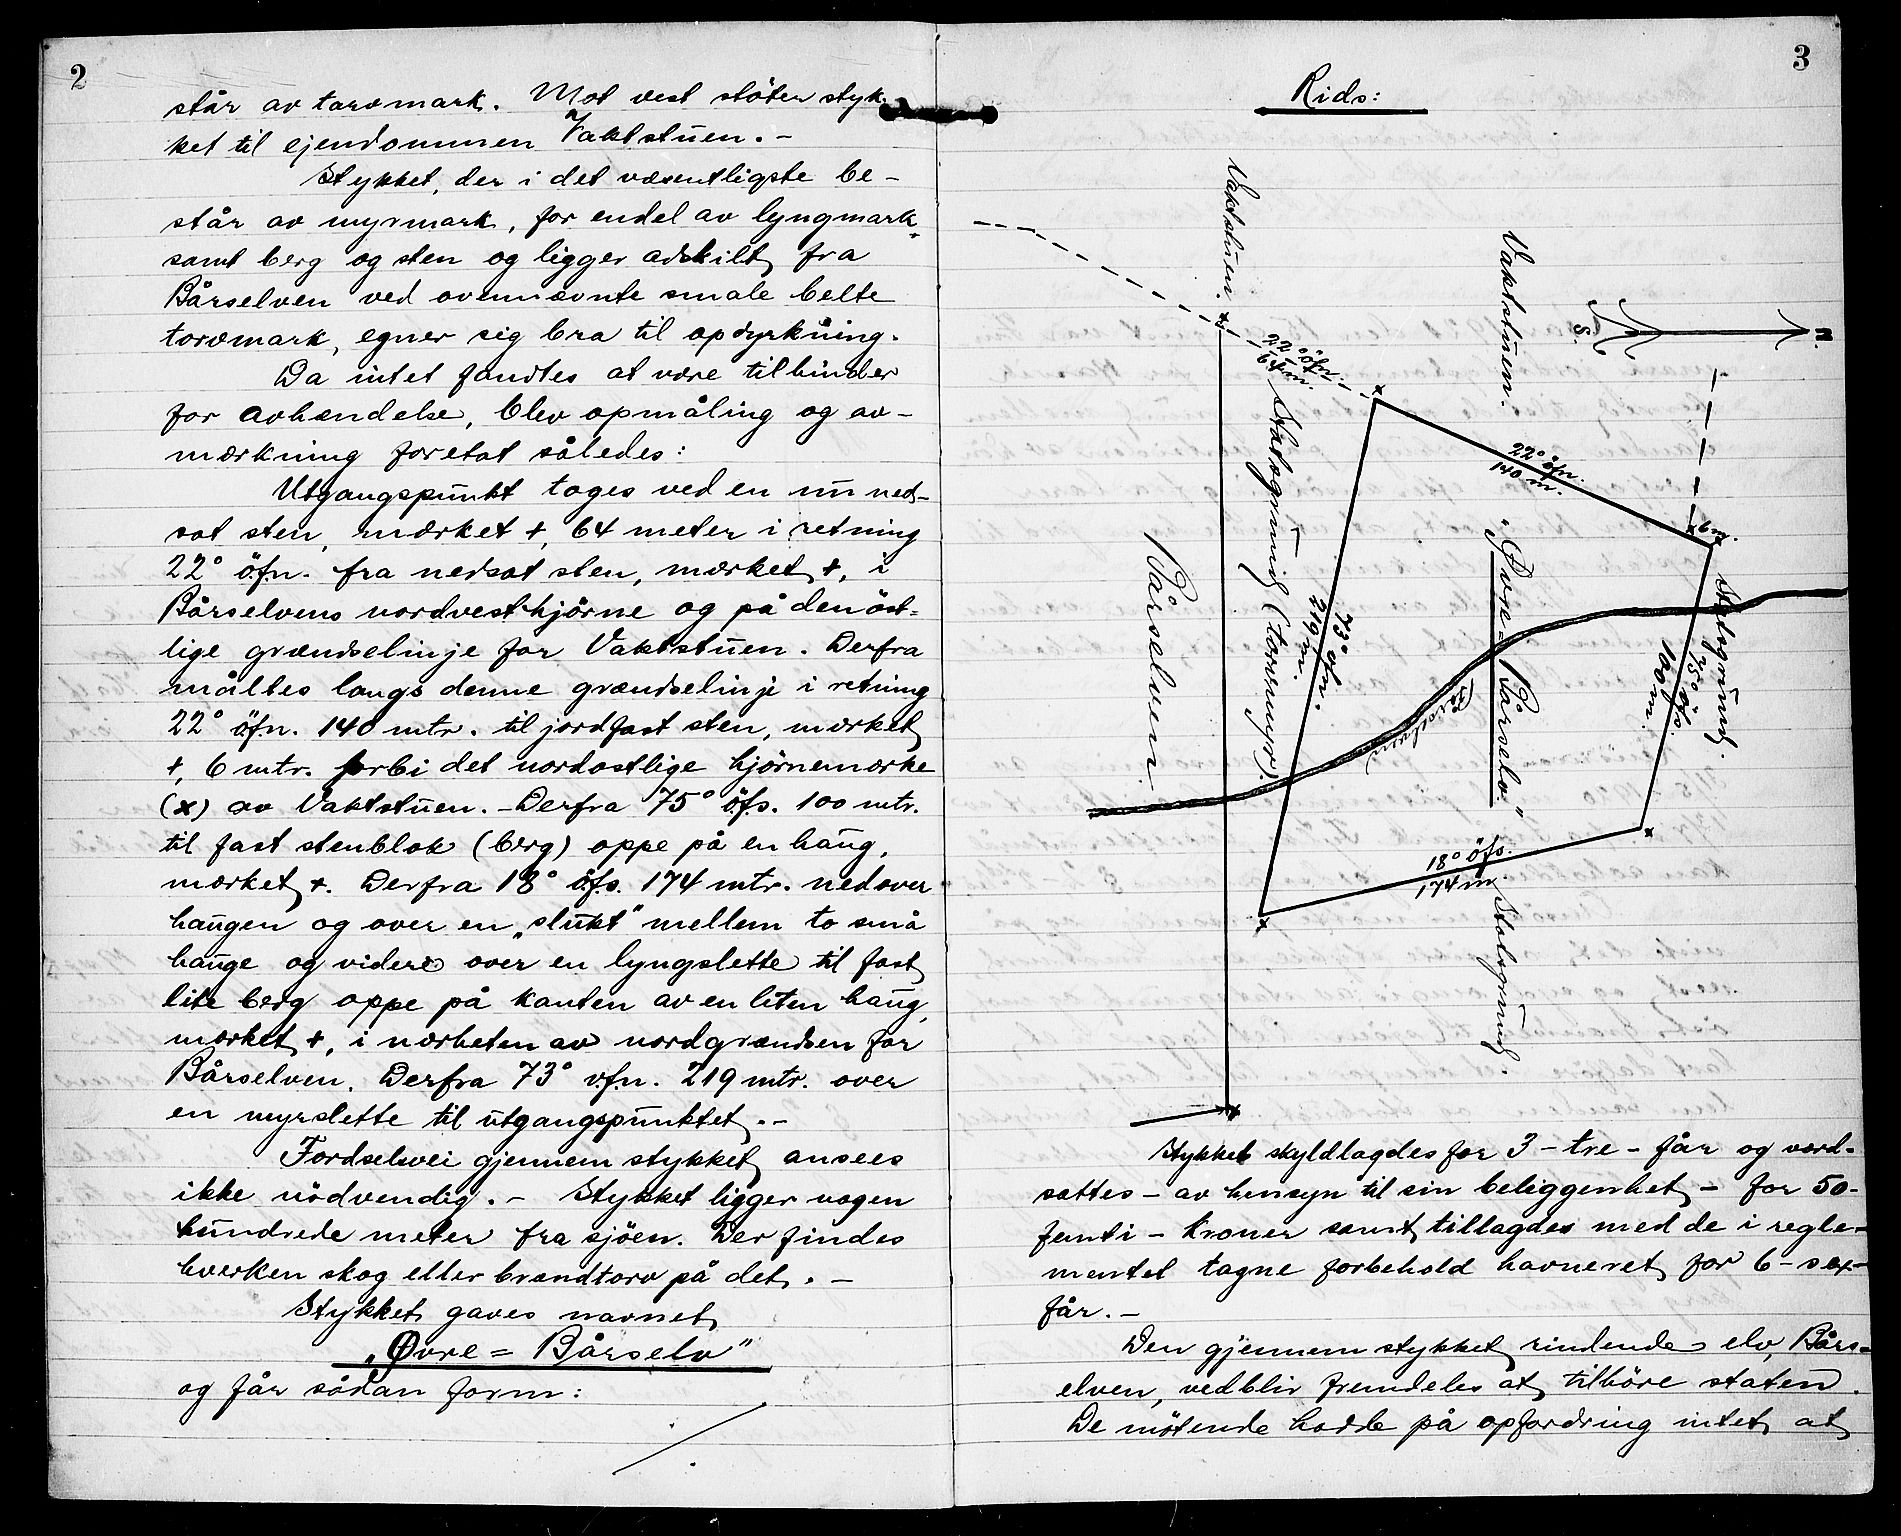 2
står av torvmark. Mot vest stöter styk-
ket til ejendommen Vaktstuen. -
Stykket, der i det væsentligste be-
står av myrmark, for endel av lyngmark
samt berg og sten og ligger adskilt fra
Bårselven ved ovennævnte smale belte
torvmark, egner sig bra til opdyrkning.
Da intet fandtes at være tilhinder
for avhændelse, blev opmåling og av-
mærkning foretat således:
Utgangspunkt toges ved en nu ned-
sat sten, mærket +, 64 meter i retning
22° ö.f.n. fra nedsat sten, mærket +, i
Bårselvens nordvesthjörne og på den öst-
lige grændselinje for Vaktstuen. Derfra
måltes langs denne grændselinje i retning
22° ö.f.n. 140 mtr. til jordfast sten, mærket
+, 6 mtr. forbi det nordostlige hjörnemærke
(x) av Vaktstuen. - Derfra 75° ö.f.s. 100 mtr.
til fast stenblok (berg) oppe på en haug,
mærket +. Derfra 18° ö.f.s. 174 mtr. nedover
haugen og over en „slukt" mellem to små
hauge og videre over en lyngslette til fast
lite berg oppe på kanten av en liten haug,
mærket +, i nærheten av nordgrændsen for
Bårselven. Derfra 73° v.f.n. 219 mtr. over
en myrslette til utgangspunktet. -
Færdselsvei gjennem stykket ansees
ikke nödvendig. - Stykket ligger nogen
hundrede meter fra sjöen. Der findes
hverken skog eller brændtorv på det. -
Stykket gaves navnet
„Øvre = Bårselv"
og får sådan form:
3
Rids:
Vaktstuen.
Vaktstuen.
S.
n.
22° öfn.
64 m.
Statsgrund (torvmyr).
22° öfn.
140 m.
6 m.
„Øvre = Bårselv."
Bårselven.
73° vfn.
219 m.
Statsgrund.
75° öfs.
100 m.
18° öfs.
174 m.
Statsgrund.
Stykket skyldlagdes for 3 - tre - får og værd-
sattes - av hensyn til sin beliggenhet - for 50 -
femti - kroner samt tillagdes med de i regle-
mentet tagne forbehold havneret for 6 - sex -
får. -
Den gjennem stykket rindende elv, Bårs-
elven, vedblir fremdeles at tilhöre staten.
De mötende hadde på opfordring intet at